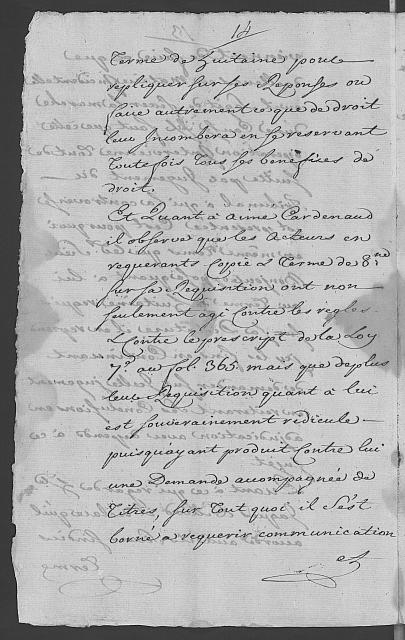 14
Terme de huitaine pour
repliquer sur ses Reponses ou
faire autrement ce que de droit
leur Incombera en se reservant
Toutefois Tous ses benefices de
droit.
Et Quant à Aimé Cardenaud
il observe que les Acteurs en
requerants Copie & Terme de 8.ne
sur sa Requisition ont non
seulement agi Contre les regles
& Contre le prescript de la Loy
7.e au fol. 365. mais que deplus
leur Requisition quant à lui
est souverainement ridicule
puisqu'ayant produit Contre lui
une Demande accompagnée de
Titres, sur Tout quoi, il s'est
borné a requerir communication
&